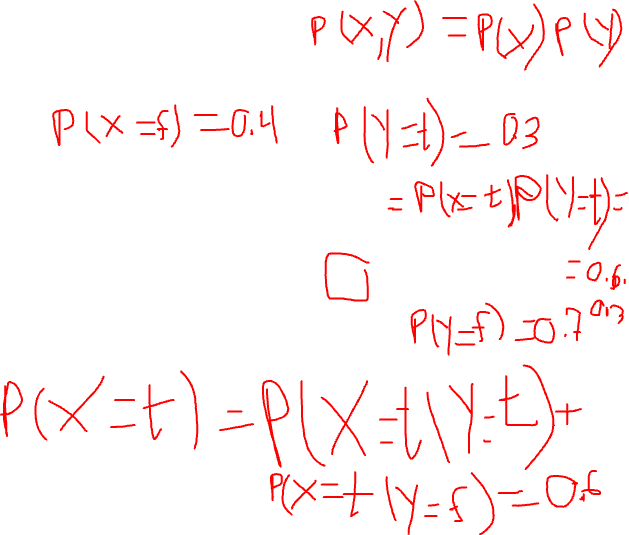 P(X,Y) = P(X) P(Y)
P(X=f) = 0.4 P(Y=t) = 0.3
= P(X=t) P(Y=t) =
= 0.6.
0.3
P(Y=f) = 0.7
P(X=t) = P(X=t\Y=t) +
P(X=t(Y=f) = 0.6